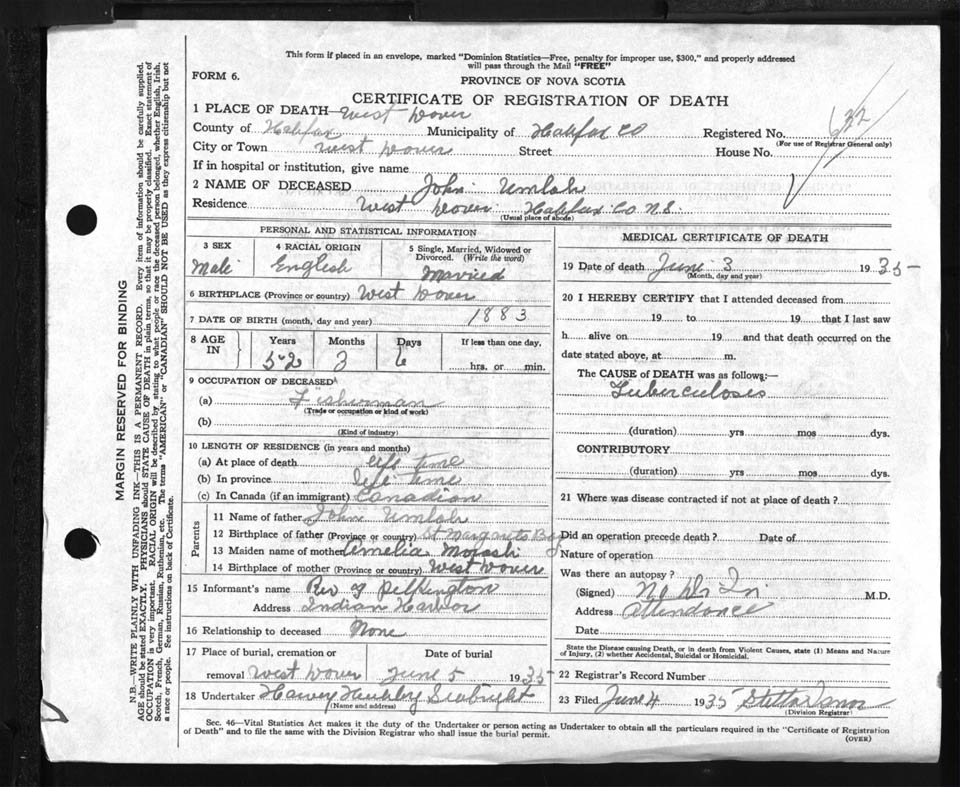 This form if placed in an envelope, marked "Dominion Statistics—Free, penalty for improper use, $300," and properly addressed
will pass through the Mail "FREE"
FORM 6.
PROVINCE OF NOVA SCOTIA
CERTIFICATE OF REGISTRATION OF DEATH
1 PLACE OF DEATH— West Dover
County of Halifax Municipality of Halifax Co Registered No. 632
(For use of Registrar General only)
City or Town West Dover Street House No.
If in hospital or institution, give name
2 NAME OF DECEASED John Umlah
Residence West Dover Halifax Co N.S.
(Usual place of abode)
PERSONAL AND STATISTICAL INFORMATION
3 SEX 4 RACIAL ORIGIN 5 Single, Married, Widowed or
Divorced. (Write the word)
Male English Married
6 BIRTHPLACE (Province or country) West Dover
7 DATE OF BIRTH (month, day and year) 1883
8 AGE IN Years Months Days If less than one day,
52 3 6 hrs. or min.
9 OCCUPATION OF DECEASED
(a) Fisherman
(Trade or occupation or kind of work)
(b)
(Kind of industry)
10 LENGTH OF RESIDENCE (in years and months)
(a) At place of death life time
(b) In province life time
(c) In Canada (if an immigrant) Canadian
Parents
11 Name of father John Umlah
12 Birthplace of father (Province or country) St Margarets Bay
13 Maiden name of mother Amelia
14 Birthplace of mother (Province or country) West Dover
15 Informant's name Rev Pilkington
Address Indian Harbor
16 Relationship to deceased None
17 Place of burial, cremation or Date of burial
removal West Dover June 5 1935
18 Undertaker Harvey Hubley Seabright
(Name and address)
MEDICAL CERTIFICATE OF DEATH
19 Date of death June 3 1935
(Month, day and year)
20 I HEREBY CERTIFY that I attended deceased from
19 to 19 that I last saw
h alive on 19 and that death occurred on the
date stated above, at m.
The CAUSE of DEATH was as follows:—
Tuberculosis
(duration) yrs mos dys.
CONTRIBUTORY
(duration) yrs mos dys.
21 Where was disease contracted if not at place of death?
Did an operation precede death? Date of
Nature of operation
Was there an autopsy?
(Signed) No Dr In M.D.
Address Attendance
Date
State the Disease causing Death, or in death from Violent Causes, state (1) Means and Nature
of Injury, (2) whether Accidental, Suicidal or Homicidal.
22 Registrar's Record Number
23 Filed June 4 1935
(Division Registrar)
Sec. 46—Vital Statistics Act makes it the duty of the Undertaker or person acting as Undertaker to obtain all the particulars required in the "Certificate of Registration
of Death" and to file the same with the Division Registrar who shall issue the burial permit.
(OVER)
MARGIN RESERVED FOR BINDING
N.B.—WRITE PLAINLY WITH UNFADING INK—THIS IS A PERMANENT RECORD. Every item of information should be carefully supplied.
AGE should be stated EXACTLY. PHYSICIANS should STATE CAUSE OF DEATH in plain terms, so that it may be properly classified. Exact statement of
OCCUPATION is very important. RACIAL ORIGIN will be described by stating to what people or race the deceased person belonged, whether English, Irish,
Scotch, French, German, Russian, Ruthenian, etc. The terms "AMERICAN" or "CANADIAN" SHOULD NOT BE USED as they express citizenship but not
a race or people. See instructions on back of Certificate.